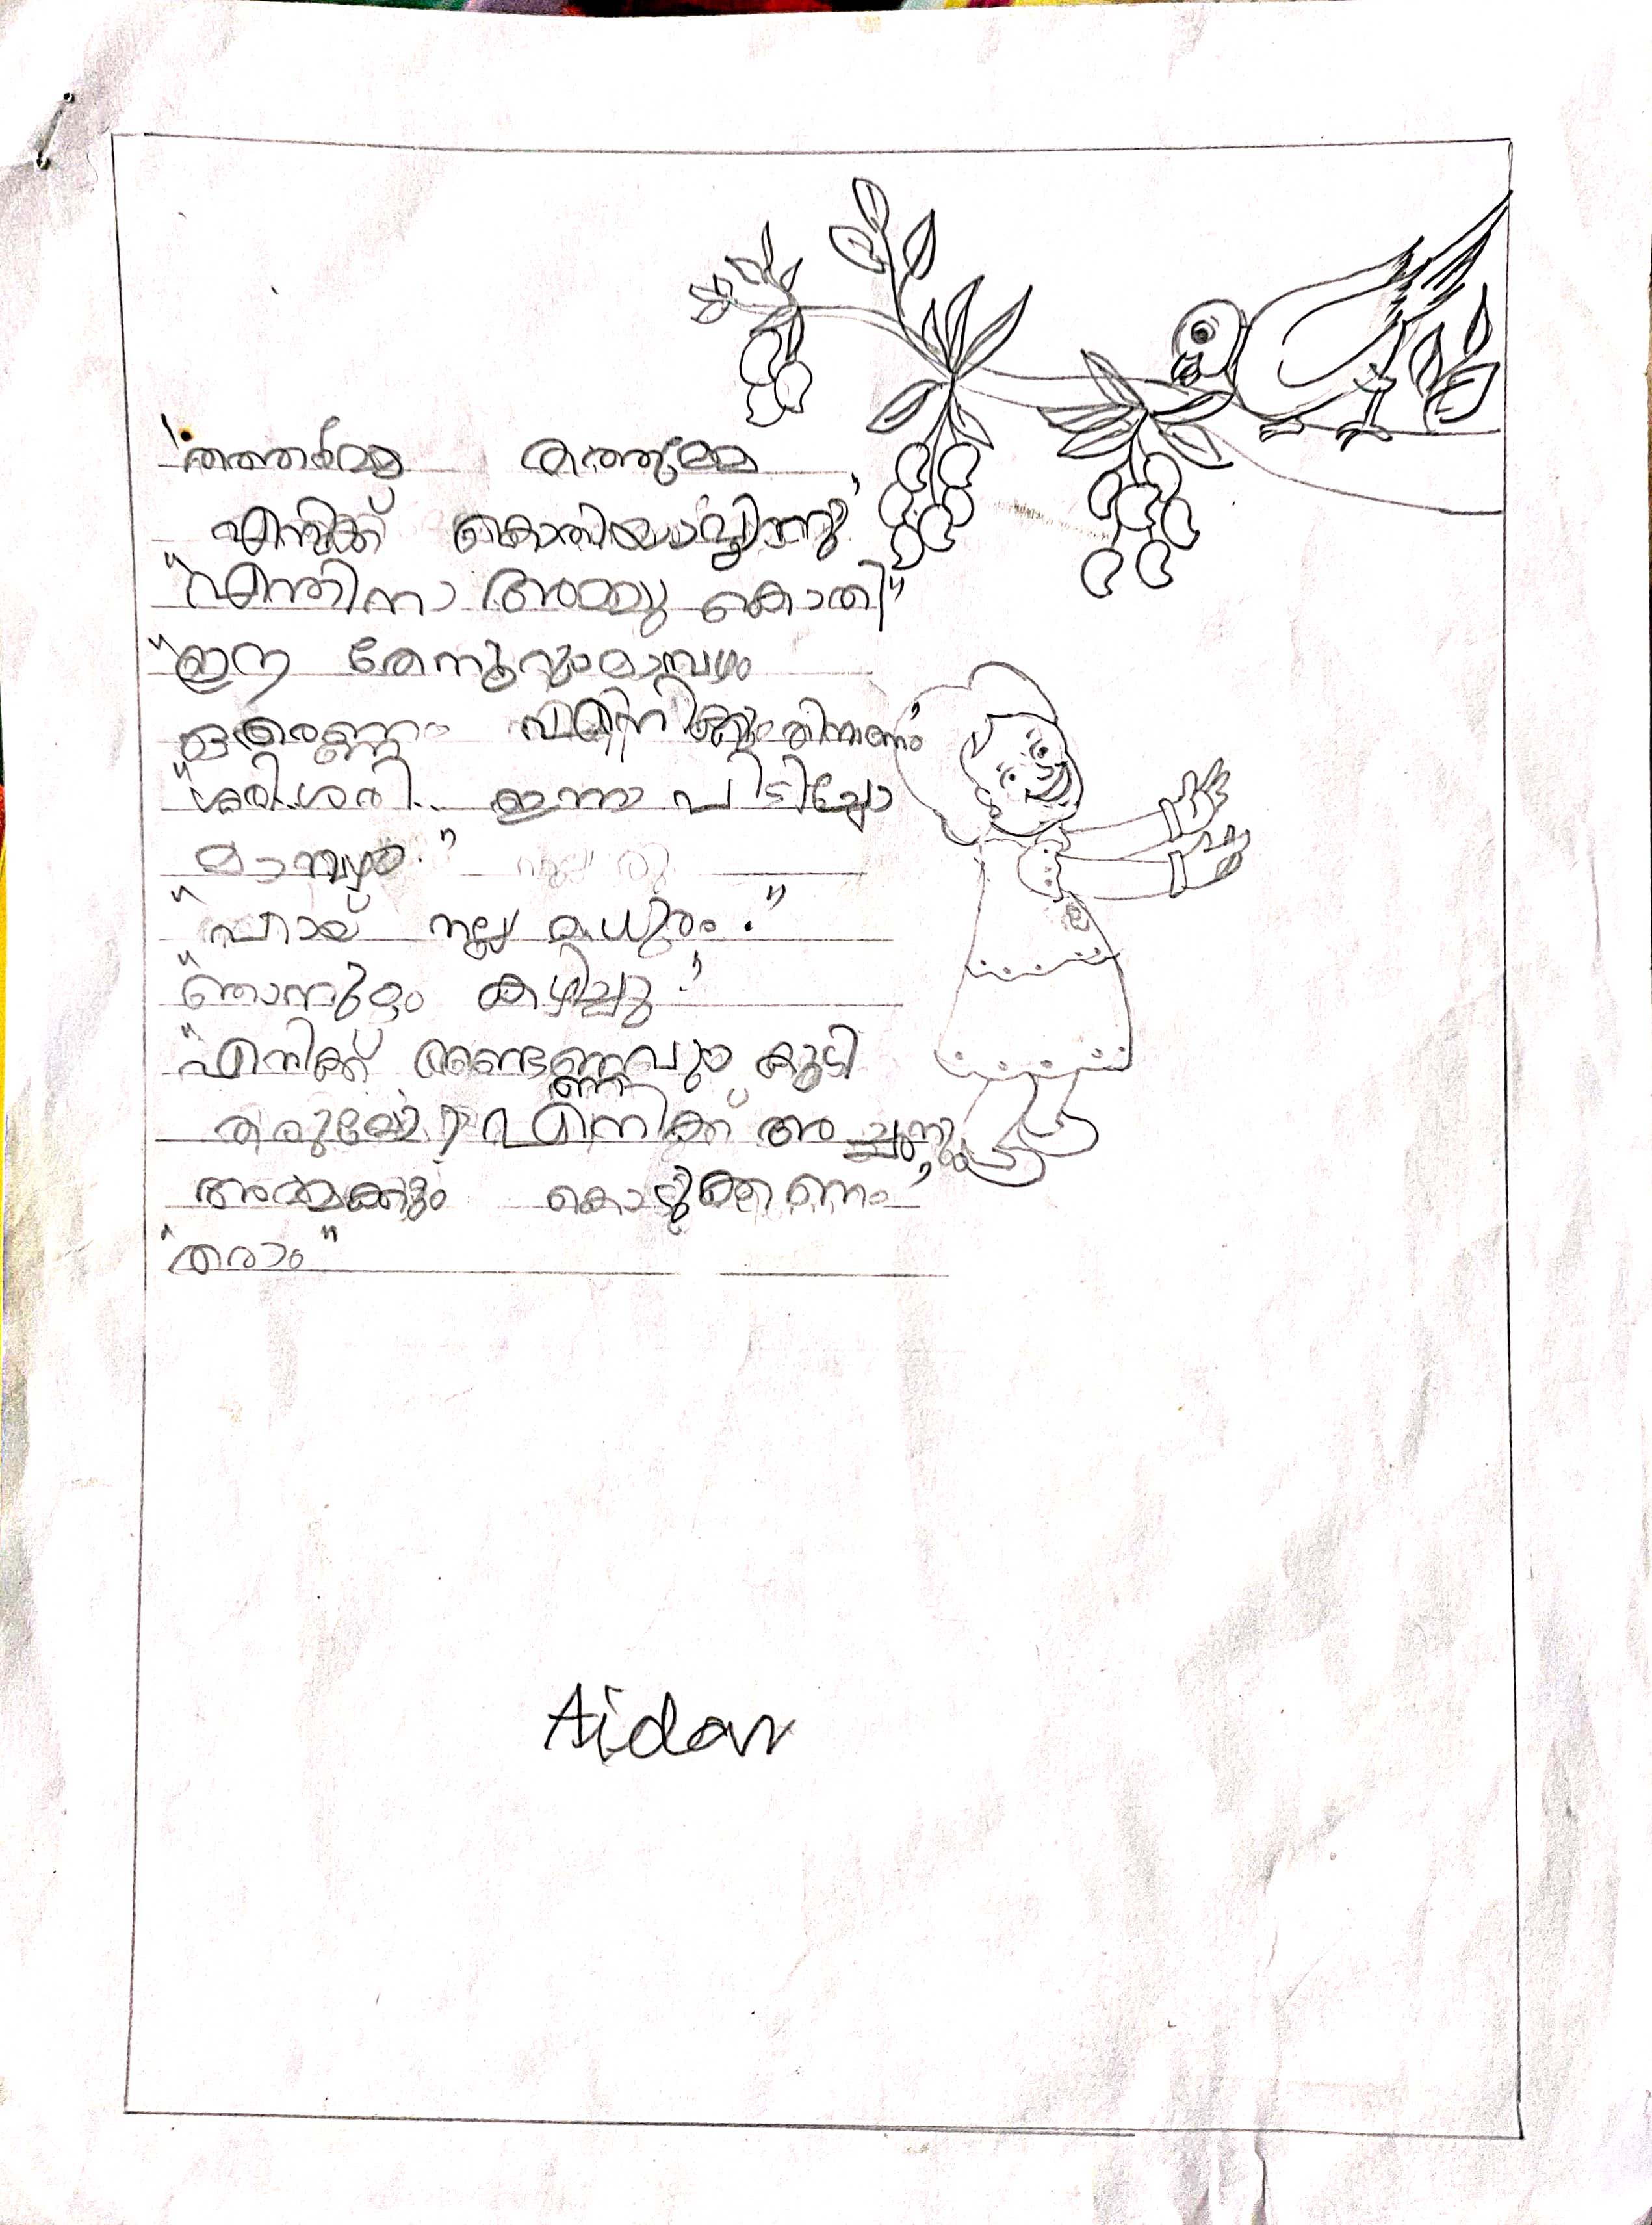 "തത്തമ്മേ തത്തമ്മേ
എനിക്ക് കൊതിയാവുന്നു"
"എന്തിനാ അമ്മു കൊതി"
"ഈ തേനൂറും മാമ്പഴം
ഒരെണ്ണം എനിക്കും തിന്നണം"
"ശരി.. ശരി.. ഇന്നാ പിടിച്ചോ
മാമ്പഴം."
"ഹായ് നല്ല മധുരം."
"ഞാനും കഴിച്ചു"
"എനിക്ക് രണ്ടെണ്ണവും കൂടി
തരുമോ? എനിക്ക് അച്ഛനും
അമ്മക്കും കൊടുക്കണം"
"തരാം"
Aidan